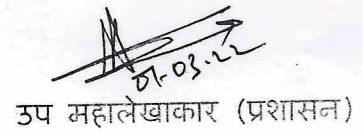 01-03-22
उप महालेखाकार (प्रशासन)